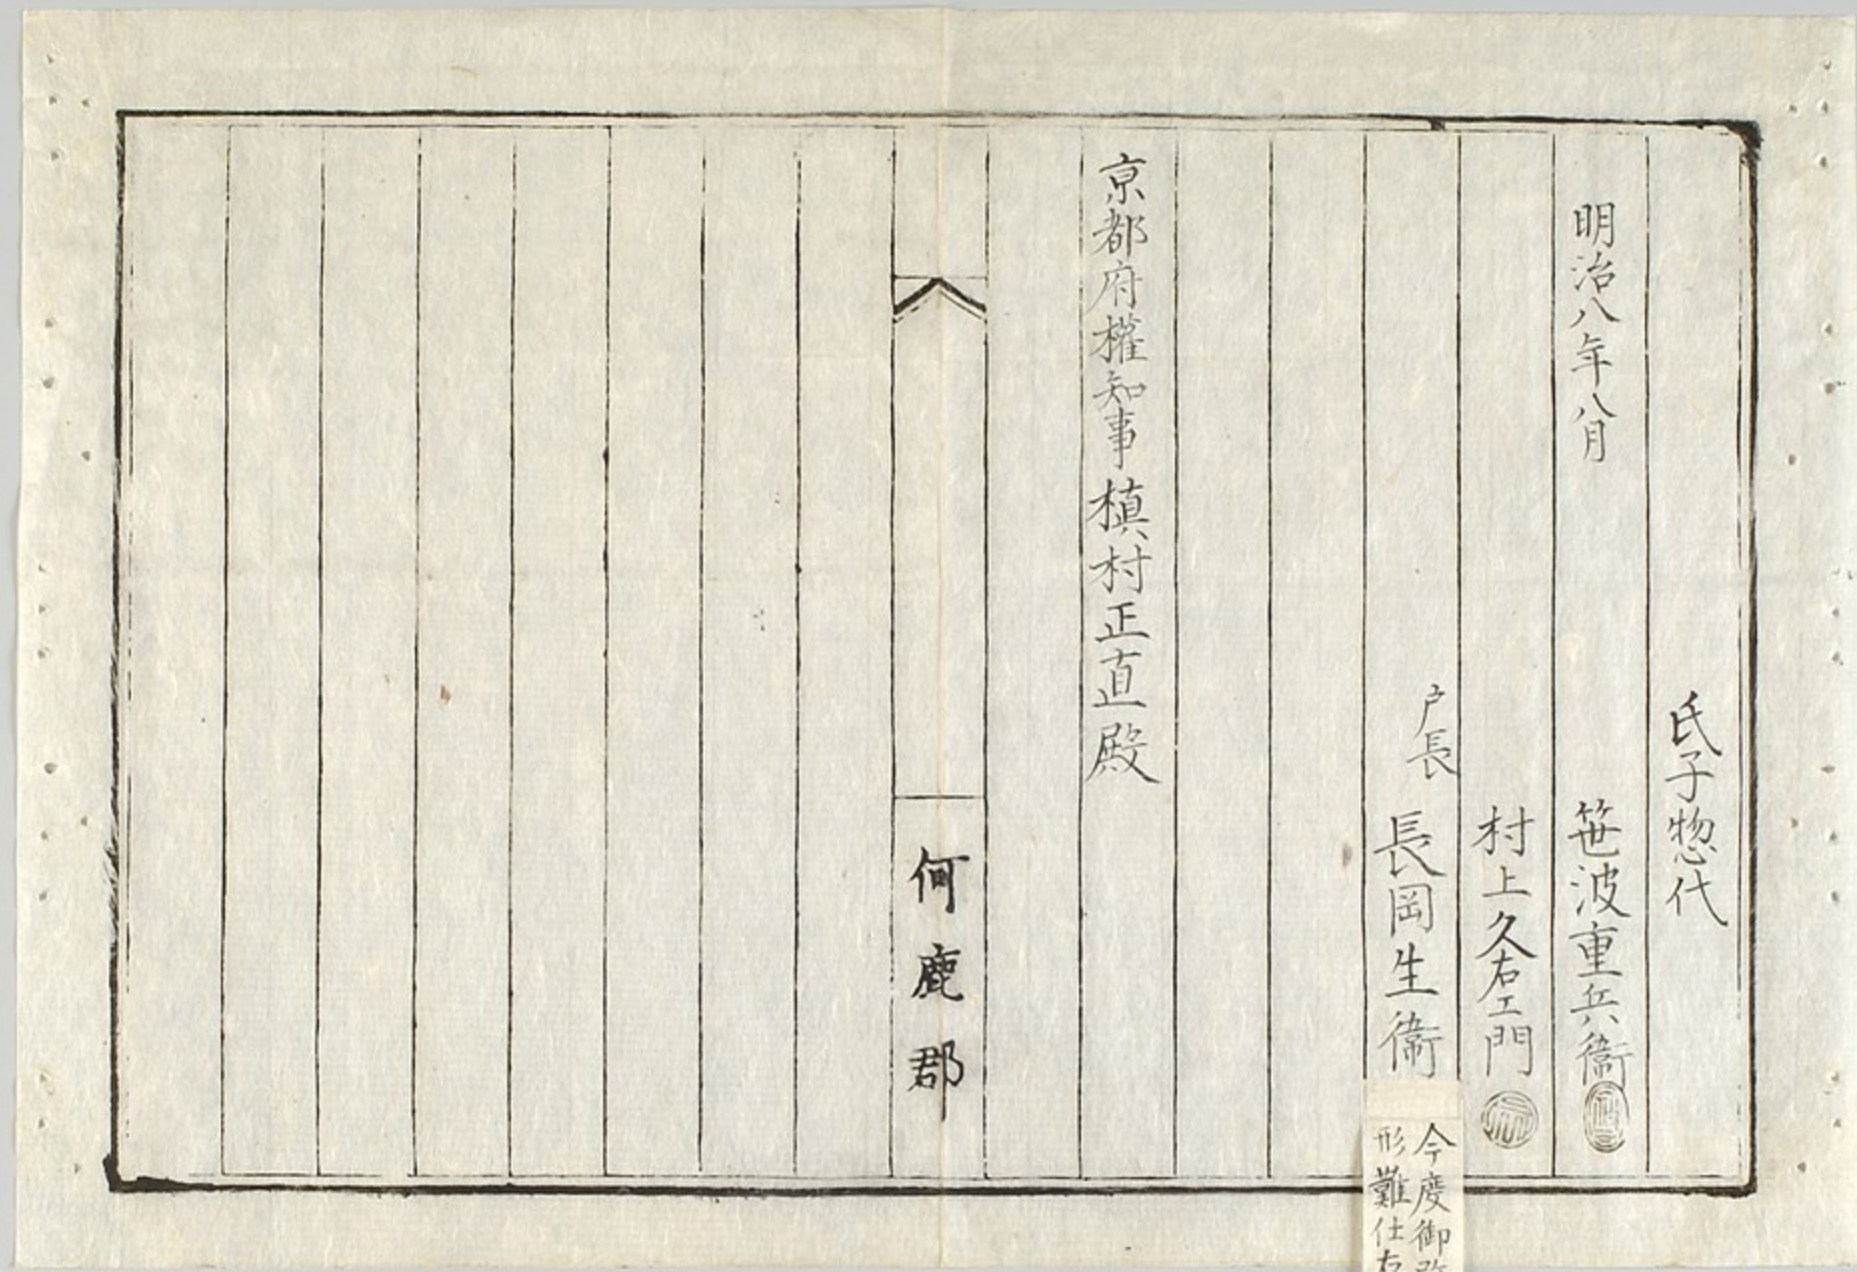 氏子惣代
明治八年八月
笹波重兵衞
村上久右エ門
戸長
長岡生衞
今度御
形難仕
京都府權知事槇村正直殿
何鹿郡